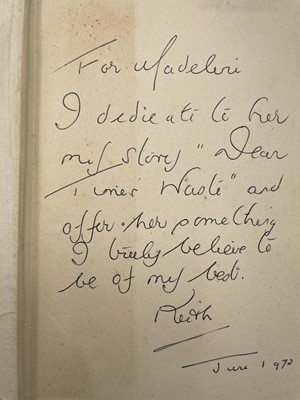 For Madelini
I dedicate to her
my story "Dear
Times Waste" and
offer her something
I truly believe to
be of my best.
Keith
June 1972